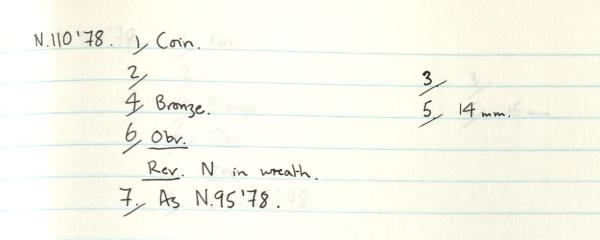 N.110'78. 1/ Coin.
2/ 3/
4/ Bronze. 5/ 14 mm.
6/ Obv.
Rev. N in wreath.
7/. As N.95'78.